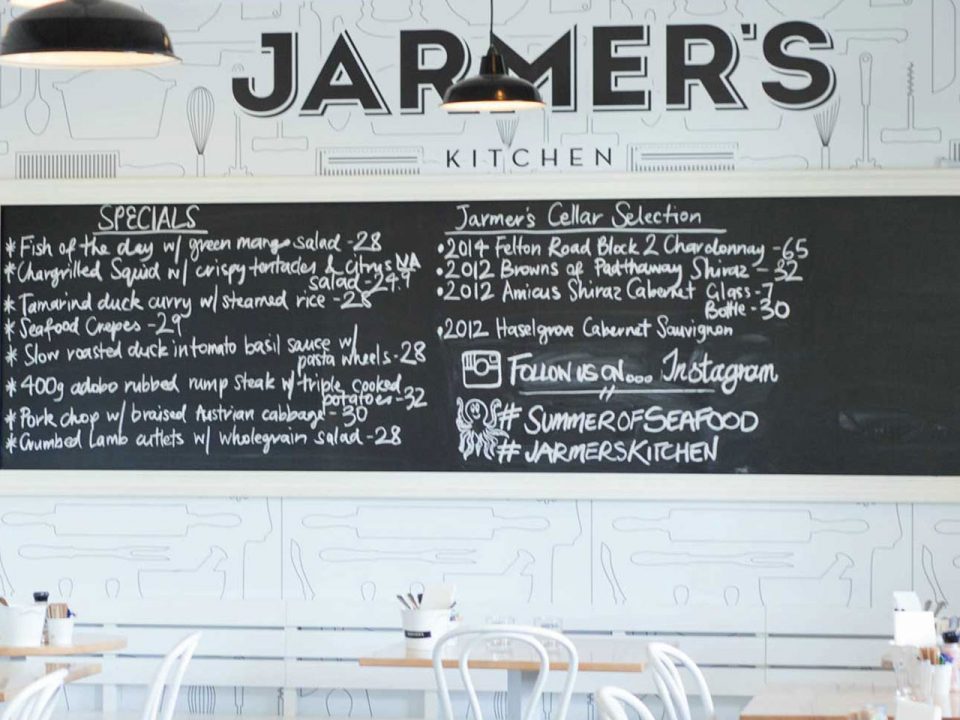 JARMER'S
KITCHEN
SPECIALS
* Fish of the day w/ green mango salad -28
* Chargrilled Squid w/ crispy tentacles & citrus
salad -24.9
* Tamarind duck curry w/ steamed rice -28
* Seafood Crepes -29
* Slow roasted duck in tomato basil sauce w/
pasta wheels -28
* 400g adobo rubbed rump steak w/ triple cooked
potatoes -32
* Pork chop w/ braised Austrian cabbage -30
* Crumbed Lamb cutlets w/ wholegrain salad -28
Jarmer's Cellar Selection
• 2014 Felton Road Block 2 Chardonnay -65
• 2012 Browns of Padthaway Shiraz - 32
• 2012 Amicus Shiraz Cabernet Glass -7
Bottle -30
• 2012 Haselgrove Cabernet Sauvignon
FOLLOW US ON... Instagram
# SUMMEROFSEAFOOD
# JARMERSKITCHEN